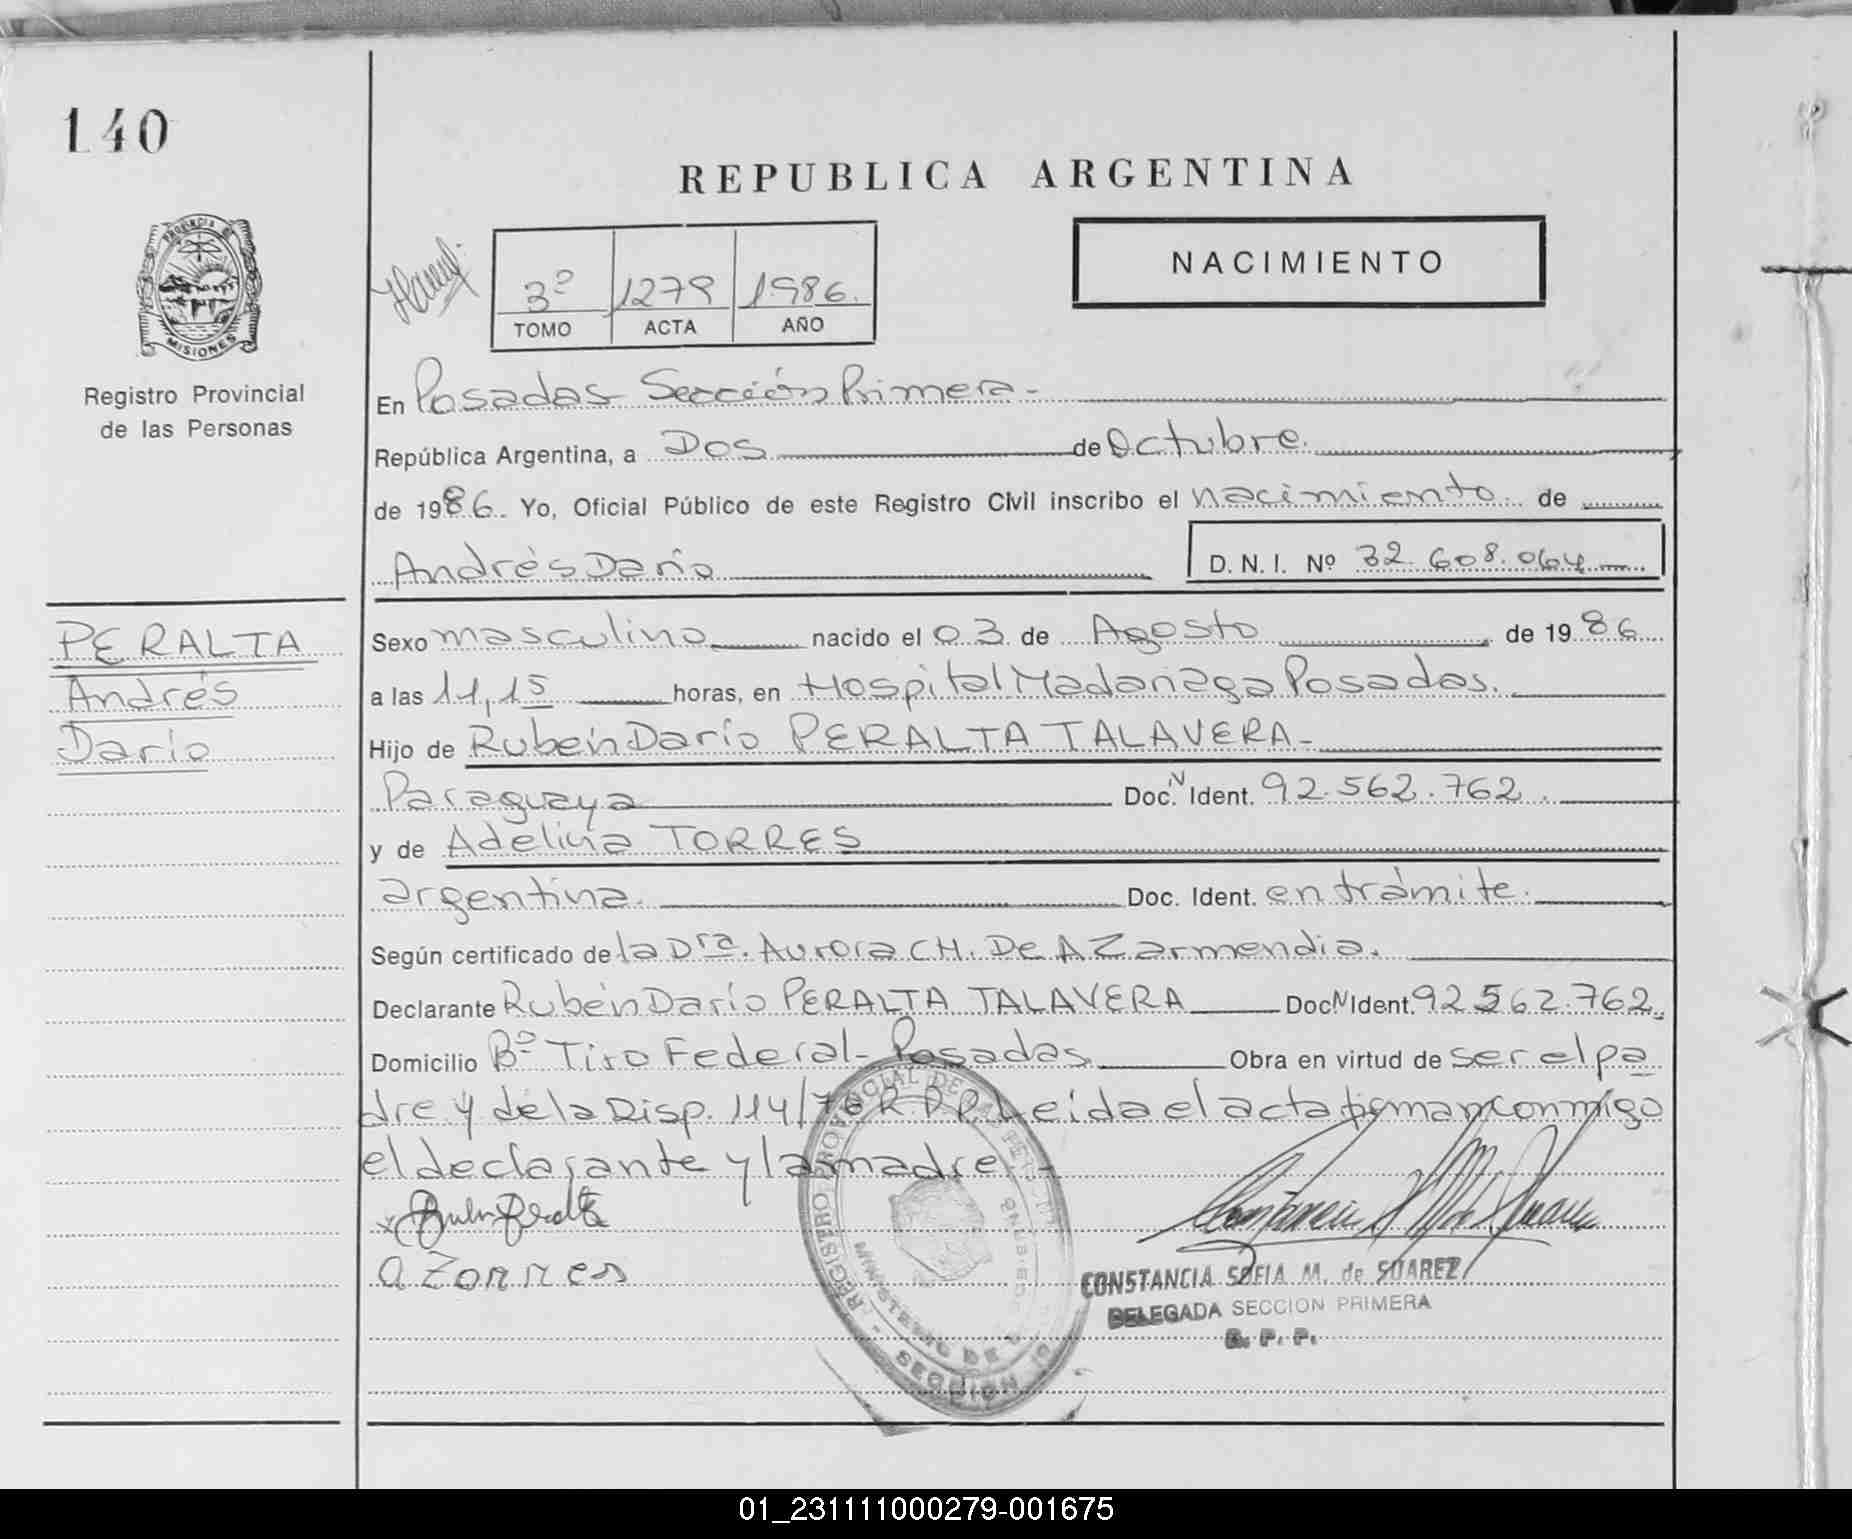 140
REPUBLICA ARGENTINA
PROVINCIA DE
MISIONES
NACIMIENTO
3º 1279 1986.
TOMO ACTA AÑO
Registro Provincial
de las Personas
En Posadas Sección Primera-
República Argentina, a Dos de Octubre.
de 1986. Yo, Oficial Público de este Registro Civil inscribo el nacimiento de
Andrés Darío D. N. I. Nº 32.608.064
PERALTA
Andrés
Darío
Sexo masculino nacido el 03 de Agosto de 1986
a las 11,15 horas, en Hospital Madariaga Posadas.
Hijo de Rubén Darío PERALTA TALAVERA-
Paraguaya Doc. N Ident. 92.562.762.
y de Adelina TORRES
argentina. Doc. Ident. en trámite.
Según certificado de la Dra. Aurora CH. De AZarmendia.
Declarante Rubén Darío PERALTA TALAVERA Doc N Ident. 92562.762.
Domicilio Bº Tiro Federal- Posadas Obra en virtud de ser el pa
dre y de la Disp. 114/76 R.P.P. Leida el acta firman conmigo
el declarante y la madre.-
Ruben Peralta
a Torres
REGISTRO PROVINCIAL DE LAS PERSONAS
MINISTERIO DE GOBIERNO
SECCION 1a
CONSTANCIA SOFIA M. de SUAREZ
DELEGADA SECCION PRIMERA
R. P. P.
01_231111000279-001675